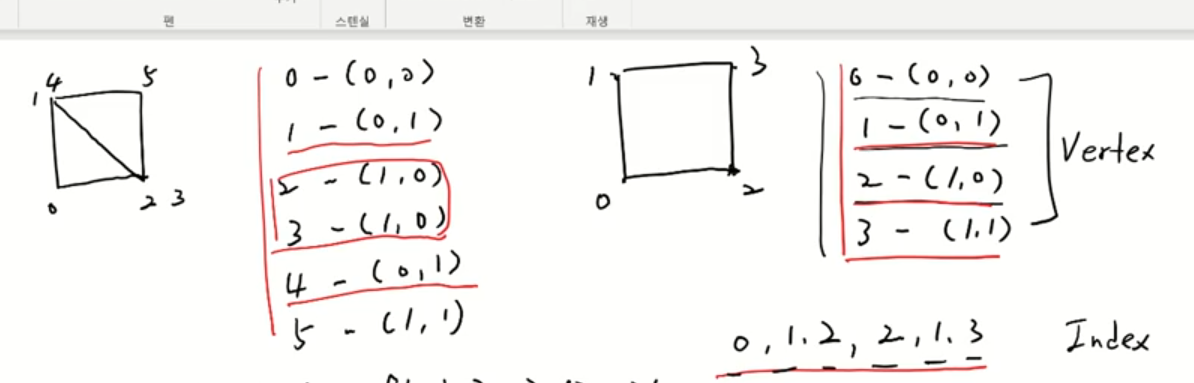 펜 스텐실 변환 재생
4 5
1
0 2 3
0 - (0,0)
1 - (0,1)
2 - (1,0)
3 - (1,0)
4 - (0,1)
5 - (1,1)
1 3
0 2
0 - (0,0)
1 - (0,1)
2 - (1,0)
3 - (1.1)
Vertex
0, 1.2, 2, 1.3 Index